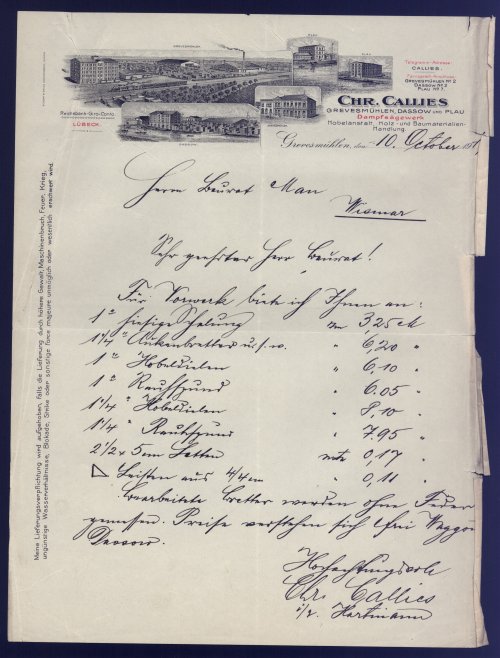 GREVESMÜHLEN
PLAU
PLAU
Telegramm-Adresse:
CALLIES.
Fernsprech-Anschluss:
GREVESMÜHLEN Nº 2
DASSOW Nº 3
PLAU Nº 7.
Reichsbank-Giro-Conto
LÜBECK.
DASSOW
CHR. CALLIES
GREVESMÜHLEN, DASSOW UND PLAU
Dampfsägewerk
Hobelanstalt, Holz- und Baumaterialien-
Handlung.
Grevesmühlen, den 10. October
Herrn Baurat Man
Wismar
Sehr geehrter Herr Baurat!
Für Vorwerk biete ich Ihnen an:
1" hiesige Schalung 3,25 M
1¼" u.s.w. " 6,20 "
1" Hobeldielen " 6,10 "
1" Rauhspund " 6.05 "
1¼" Hobeldielen " 8,10 "
1¼" Rauhspund " 7.95 "
2½ x 5 cm Latten 0,17 "
Leisten aus 4/4 cm " 0,11 "
Bearbeitete Bretter werden ohne Feder
gemessen. Preise verstehen sich frei Waggon
Dassow.
Hochachtungsvoll
Chr. Callies
Hartmann
Meine Lieferungsverpflichtung wird aufgehoben, falls die Lieferung durch höhere Gewalt, Maschinenbruch, Feuer, Krieg,
ungünstige Wasserverhältnisse, Blokade, Strike oder sonstige force majeure unmöglich oder wesentlich erschwert wird.